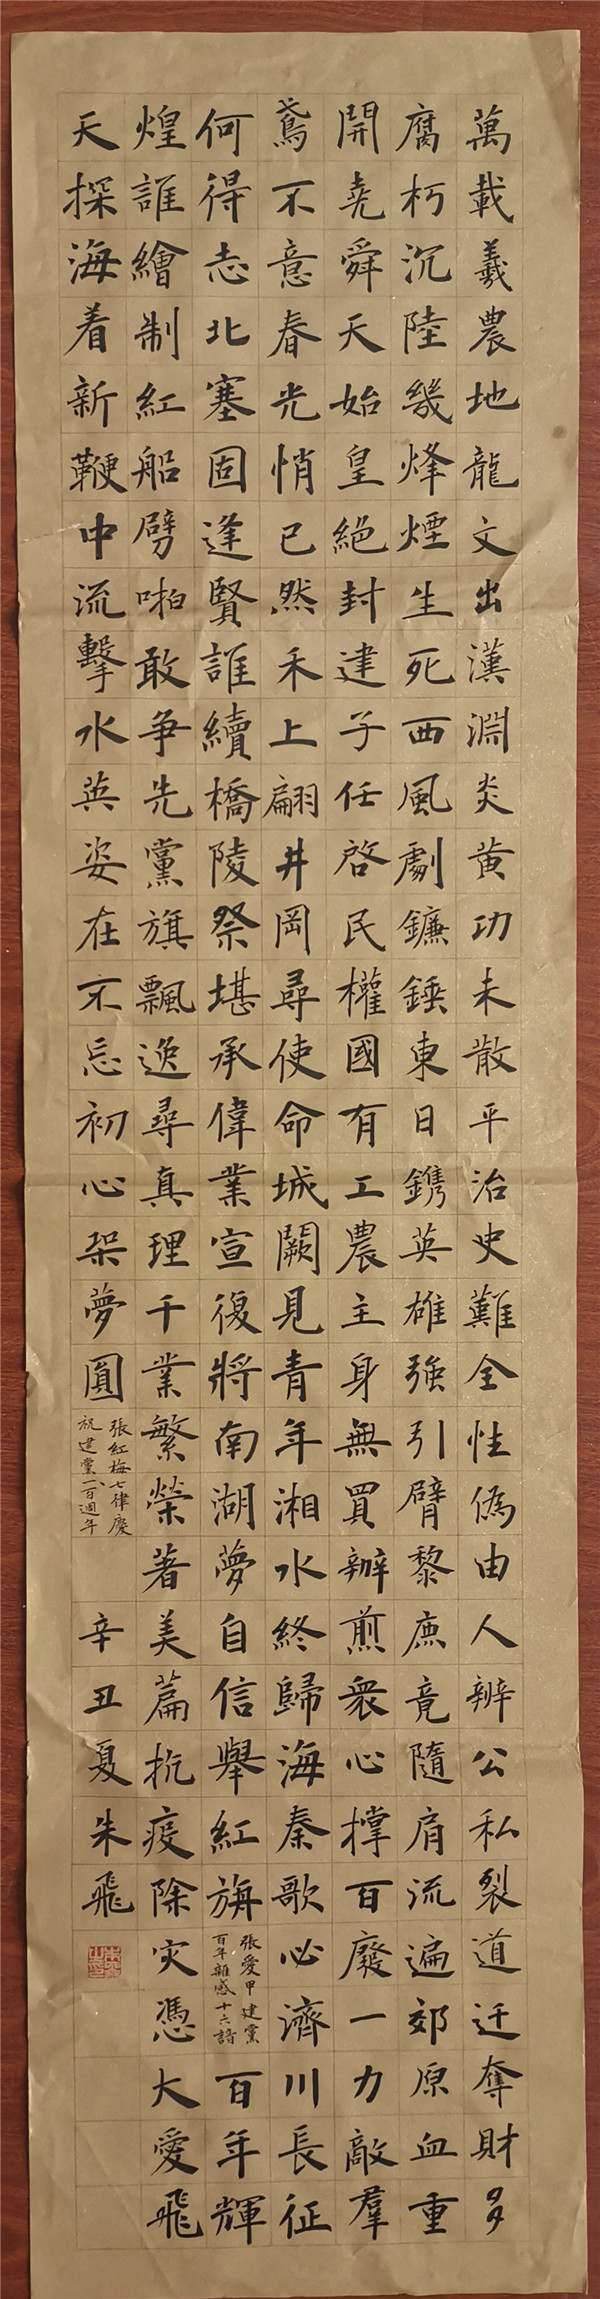 萬載羲農地龍文出漢淵炎黃功未散平治史難全性偽由人辨公私裂道迁奪財多
腐朽沉陸幾烽煙生死西風劇鐮錘東日鐫英雄強引臂黎庶竟隨肩流遍郊原血重
開堯舜天始皇絕封建子任啓民權國有工農主身無買辦煎衆心撑百廢一力敵羣
鳶不意春光悄已然禾上翩井岡尋使命城闕見青年湘水終歸海秦歌必濟川長征
何得志北塞固逢賢誰續橋陵祭堪承偉業宣復將南湖夢自信舉紅旃
張愛甲建黨
百年雜感十六韻
百年輝
煌誰繪制紅船劈啪敢爭先黨旗飄逸尋真理千業繁榮著美篇抗疫除灾憑大愛飛
天探海着新鞭中流擊水英姿在不忘初心架夢圓
張紅梅七律慶
祝建黨一百週年
辛丑夏朱飛